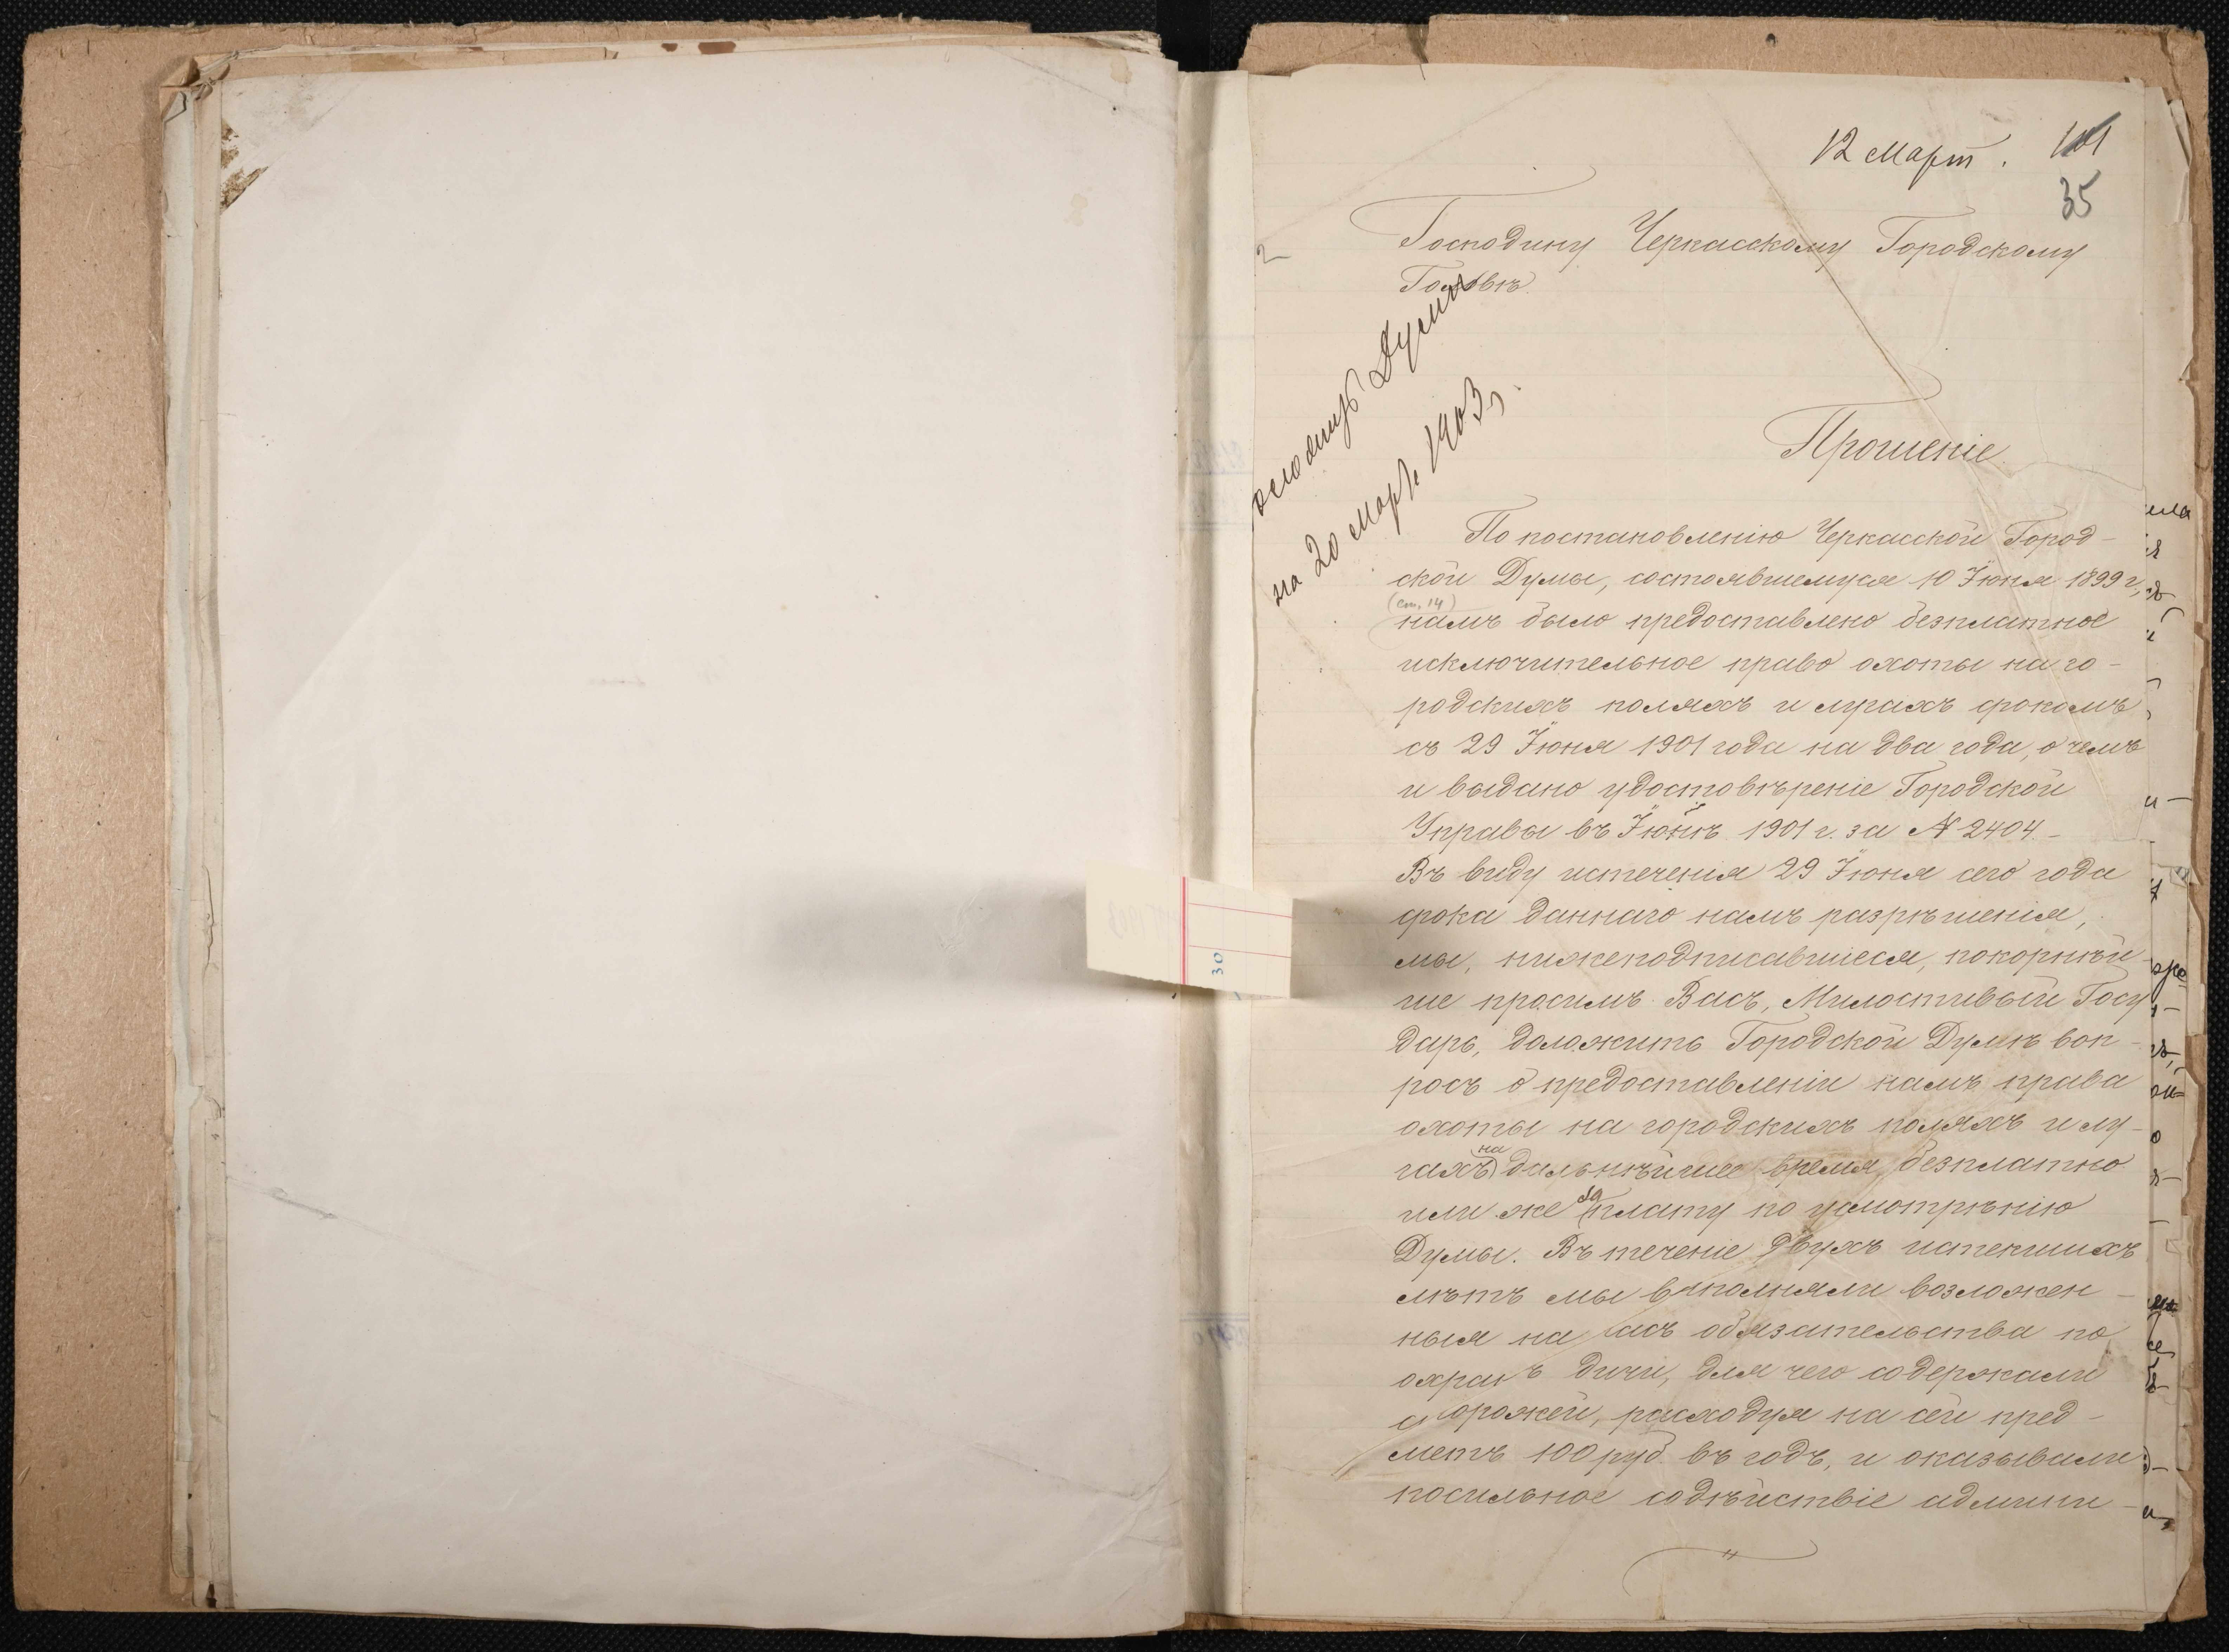 12 Март.
101
35
Господину Черкасскому Городскому
Головѣ.
Думы
на 20 Марта 1903 г.
Прошеніе.
По постановленію Черкасской Город-
ской Думы, состоявшемуся 10 Іюня 1899 г.,
(ст. 14)
намъ было предоставлено безплатное
исключительное право охоты на го-
родскихъ поляхъ и лугахъ срокомъ
съ 29 Іюня 1901 года на два года, о чемъ
и выдано удостовѣреніе Городской
Управы въ Іюнѣ 1901 г. за № 2404.-
Въ виду истеченія 29 Іюня сего года
срока даннаго намъ разрѣшенія,
мы, нижеподписавшіеся, покорнѣй-
ше просимъ Васъ, Милостивый Госу
дарь, доложить Городской Думѣ воп-
росъ о предоставленіи намъ права
охоты на городскихъ поляхъ и лу-
гахъ на дальнѣйшее время, безплатно
или же за плату по усмотрѣнію
Думы. Въ теченіе двухъ истекшихъ
лѣтъ мы выполняли возложен-
ныя на насъ обязательства по
охранѣ дичи, для чего содержали
сторожей, расходуя на сей пред-
метъ 100 руб. въ годъ, и оказывали
посильное содѣйствіе админи-
30